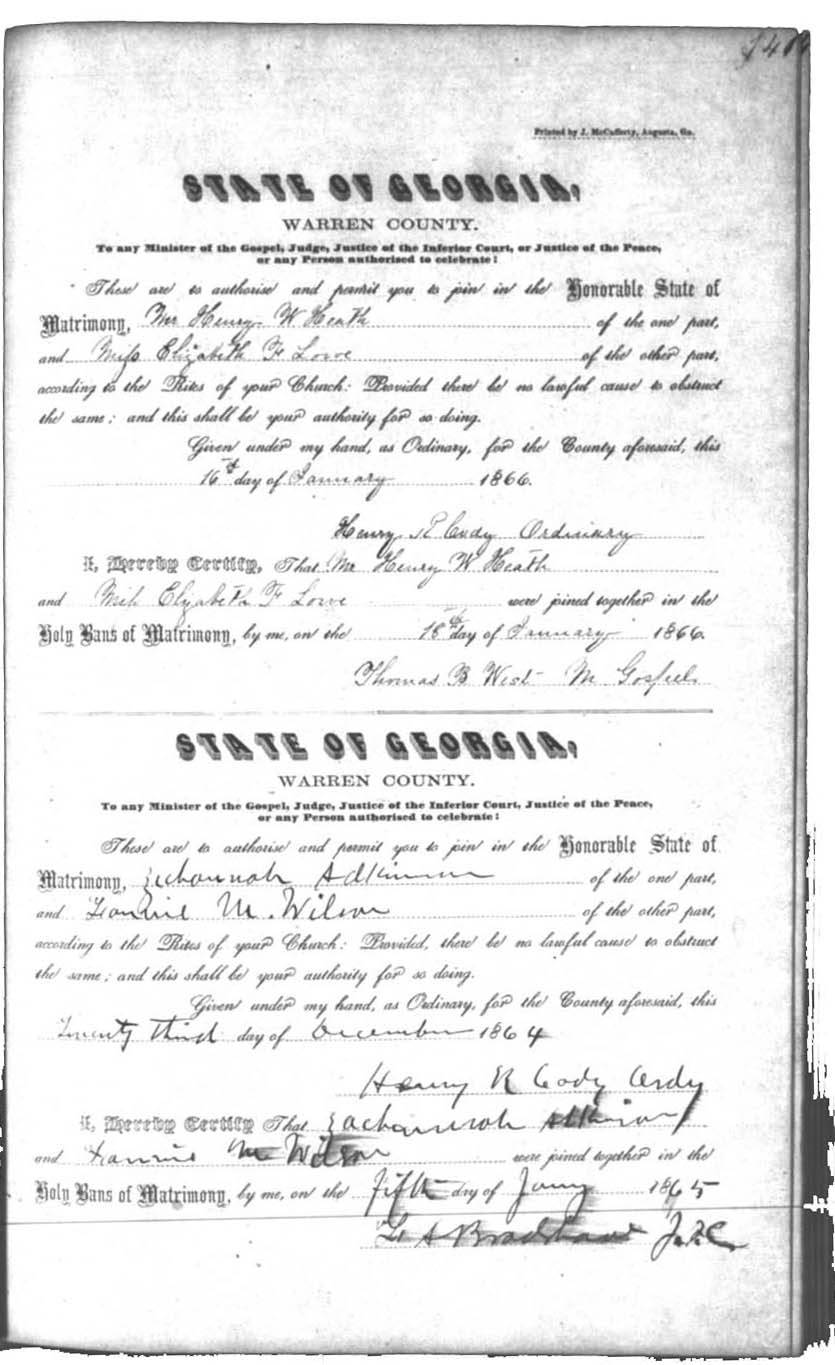 Printed by J. McCafferty, Augusta, Ga.
STATE OF GEORGIA,
WARREN COUNTY.
To any Minister of the Gospel, Judge, Justice of the Inferior Court, or Justice of the Peace,
or any Person authorised to celebrate:
These are to authorise and permit you to join in the Honorable State of
Matrimony, Mr Henry W Heath of the one part,
and Miss Elizabeth F Lowe of the other part,
according to the Rites of your Church: Provided there be no lawful cause to obstruct
the same; and this shall be your authority for so doing.
Given under my hand, as Ordinary, for the County aforesaid, this
16th day of January 1866.
Henry R Cody Ordinary
I, Hereby Certify, That Mr Henry W Heath
and Miss Elizabeth F Lowe were joined together in the
Holy Bans of Matrimony, by me, on the 18th day of January 1866.
Thomas B West M Gospel
STATE OF GEORGIA,
WARREN COUNTY.
To any Minister of the Gospel, Judge, Justice of the Inferior Court, Justice of the Peace,
or any Person authorised to celebrate:
These are to authorise and permit you to join in the Honorable State of
Matrimony, Adkinson of the one part,
and M. Wilson of the other part,
according to the Rites of your Church: Provided, there be no lawful cause to obstruct
the same; and this shall be your authority for so doing.
Given under my hand, as Ordinary, for the County aforesaid, this
Twenty third day of December 1864
Henry R Cody Ordy
I, Hereby Certify That
and Fannie M Wilson were joined together in the
Holy Bans of Matrimony, by me, on the fifth day of Jany 1865
A Bradshaw